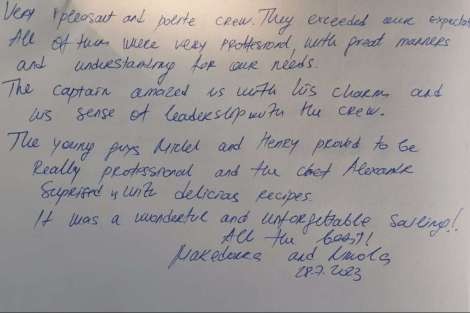 Very pleasant and polite crew. They exceeded our expecta
All of them were very proffesional, with great manners
and understanding for our needs.
The captain amazed us with his charm and
his sense of leadership with the crew.
The young guys Michel and Henry proved to be
Really proffessional and the chef Alexandr
Suprised us with delicious recipes.
It was a wonderful and unforgettable sailing!!
All the best!!
and
28.7.2023